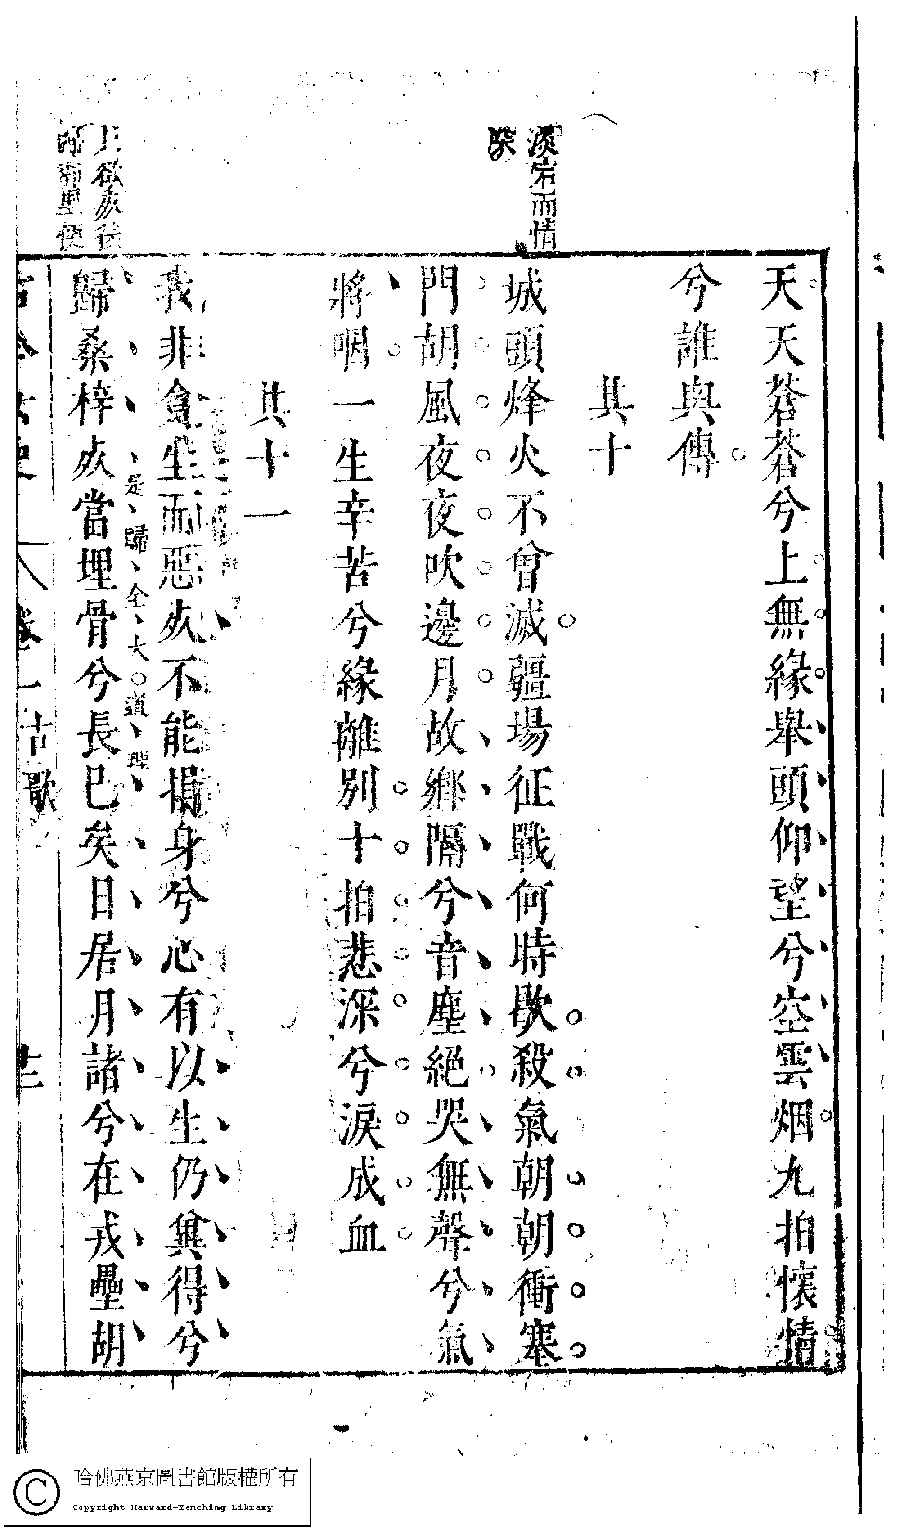 淚完而情
天天蒼蒼兮上無緣舉頭仰望兮空雲烟九拍懷情
兮誰與傳
其十
城頭烽火不曾滅疆場征戰何時歇殺氣朝朝衝塞
門胡風夜夜吹邊月故鄉隔兮音塵絕哭無聲兮氣
將咽一生辛苦兮緣離別十拍悲深兮淚成血
其十一
我非貪生而惡死不能捐身兮心有以生仍兾得兮
是歸全大道理
歸桑梓死當埋骨兮長已矣日居月諸兮在戎壘胡
卷一古歌
哈佛燕京圖書館版權所有
Copyright Harvard-Yenching Library